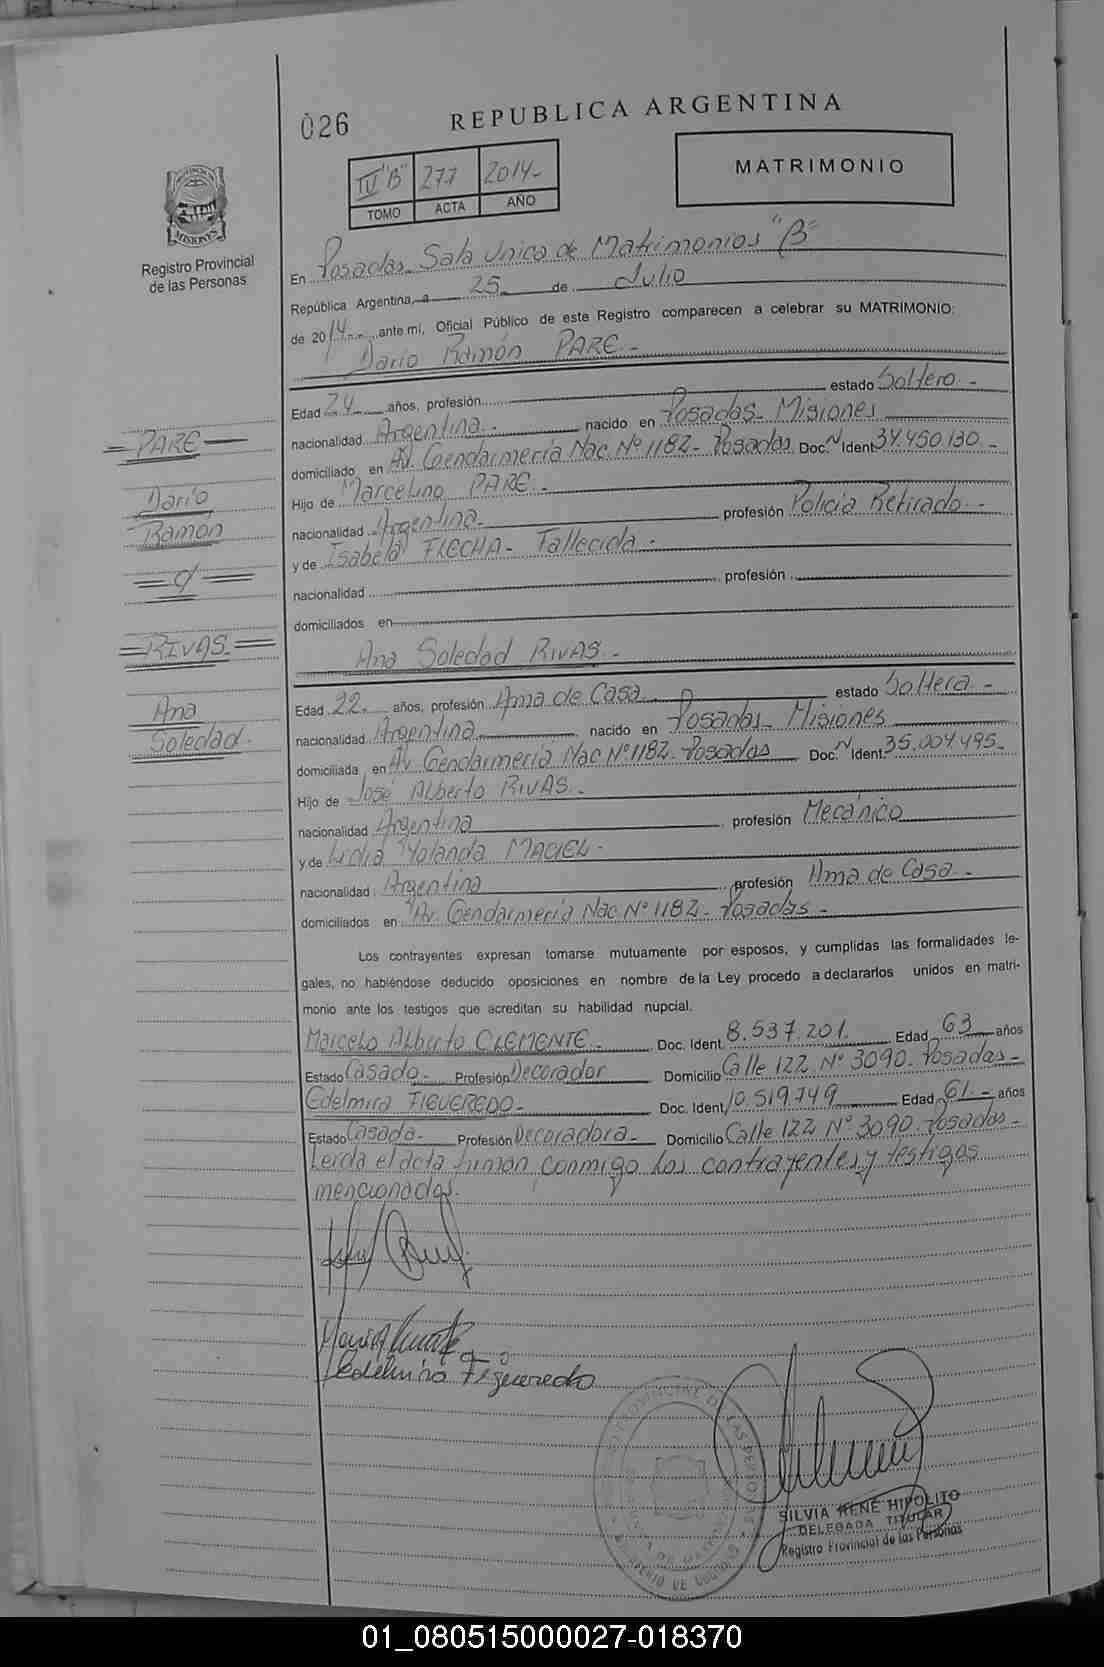 026
REPUBLICA ARGENTINA
MATRIMONIO
IV "B" 277 2014-
TOMO ACTA AÑO
MISIONES
Registro Provincial
de las Personas
En Posadas Sala Unica de Matrimonios "B"
República Argentina, a 25 de Julio
de 2014 ante mí, Oficial Público de este Registro comparecen a celebrar su MATRIMONIO:
Darío Ramón PARE.-
Edad 24 años, profesión estado Soltero.-
nacionalidad Argentina.- nacido en Posadas- Misiones
domiciliado en Av. Gendarmería Nac. Nº 1182- Posadas Doc. N Ident. 34.450.130.-
Hijo de Marcelino PARE.-
nacionalidad Argentina. profesión Policia Retirado.-
y de Isabela FLECHA- Fallecida.-
nacionalidad profesión
domiciliados en
Ana Soledad RIVAS.-
Edad 22. años, profesión Ama de Casa. estado Soltera.-
nacionalidad Argentina nacido en Posadas- Misiones
domiciliada en Av. Gendarmería Nac Nº 1182- Posadas Doc. N Ident. 35.004.495.-
Hijo de José Alberto RIVAS.-
nacionalidad Argentina profesión Mecánico
y de Lidia Yolanda MACIEL-
nacionalidad Argentina profesión Ama de Casa.-
domiciliados en Av. Gendarmería Nac. Nº 1182- Posadas-
=PARE=
Darío
Ramon
=c/=
=RIVAS=
Ana
Soledad.
Los contrayentes expresan tomarse mutuamente por esposos, y cumplidas las formalidades le-
gales, no habiéndose deducido oposiciones en nombre de la Ley procedo a declararlos unidos en matri-
monio ante los testigos que acreditan su habilidad nupcial.
Marcelo Alberto CLEMENTE.- Doc. Ident. 8.537.201. Edad 63 años
Estado Casado- Profesión Decorador Domicilio Calle 122 Nº 3090. Posadas-
Edelmira FIGUEREDO- Doc. Ident. 10.519.749 Edad 61.- años
Estado Casada- Profesión Decoradora- Domicilio Calle 122 Nº 3090. Posadas-
Leída el acta firman conmigo los contrayentes y testigos
mencionados.
Edelmira Figueredo
SILVIA RENE HIPOLITO
DELEGADA TITULAR
Registro Provincial de las Personas
01_080515000027-018370